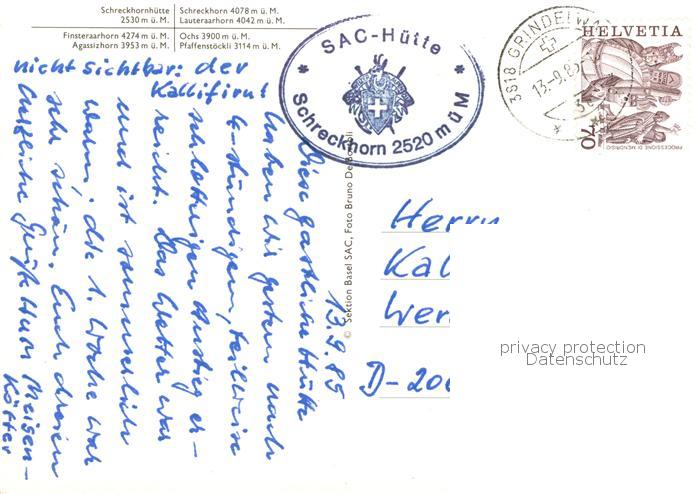 Schreckhornhütte
2530 m ü. M.
Schreckhorn 4078 m ü. M.
Lauteraarhorn 4042 m ü. M.
Finsteraarhorn 4274 m ü. M.
Agassizhorn 3953 m ü. M.
Ochs 3900 m ü. M.
Pfaffenstöckli 3114 m ü. M.
nicht sichtbar: der
Kallifirn!
* SAC-Hütte *
Schreckhorn 2520 m ü M
3818 GRINDELWALD
13.-9.85
HELVETIA
70
PROCESSIONE DI MENDRISIO
© Sektion Basel SAC, Foto Bruno
13.9.85
Diese gastliche Hütte
haben wir gestern nach
4-stündigem, teilweise
schlottrigen Anstieg er-
reicht. Das Wetter war
und ist sommerlich
warm; die 1. Woche war
sehr schön. Euch dreien
herzliche Grüße Eure Meisen-
Kötter
Herrn
Kal
Wer
D-200
privacy protection
Datenschutz